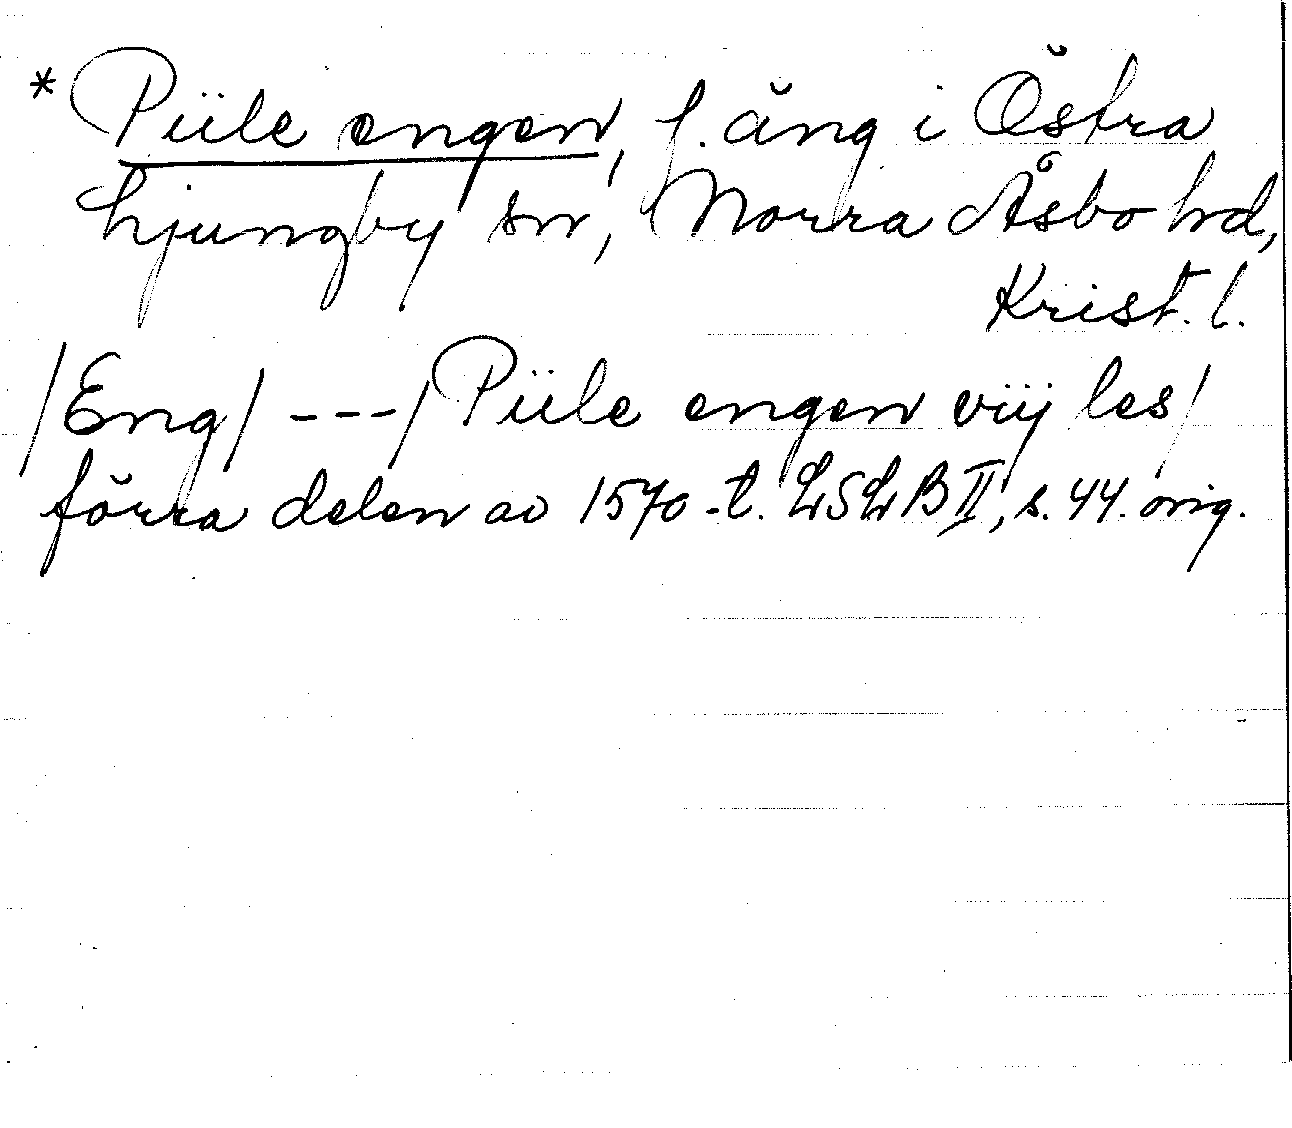 * Piile engen, f. äng i Östra
Ljungby sn, Norra Åsbo hd,
Krist. l.
/Eng/ ---/Piile engen viij les/
förra delen av 1570-t. LSLB II, s. 44. orig.